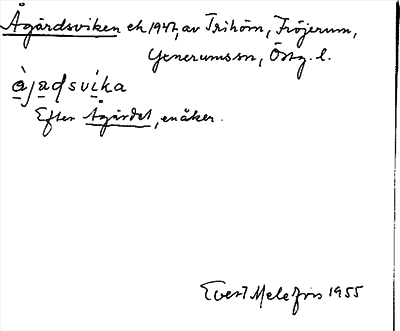 Ågärdsviken ek 1947, av Trihörn, Fröjerum,
Yxnerums sn, Östg. l.
àjaɖsvika
Efter Ågärdet, en åker.
Evert Melefors 1955